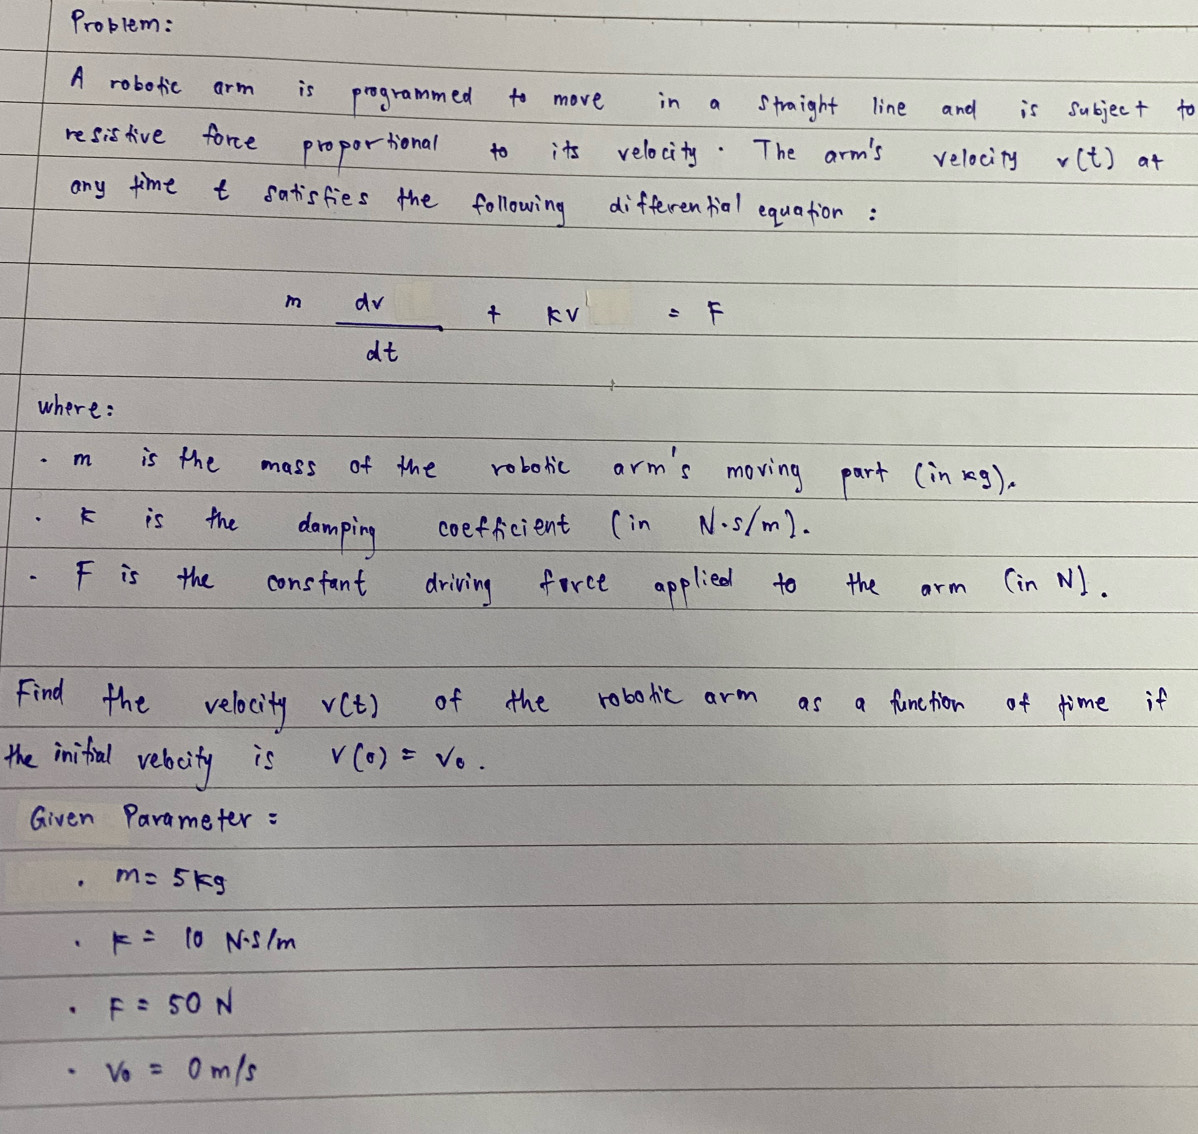 Problem:
A robotic arm is programmed to move in a straight line and is subject to
resistive force proportional to its velocity. The arm's velocity v(t) at
any time t satisfies the following differential equation:
m dv/dt + kv = F
where:
. m is the mass of the robotic arm's moving part (in kg).
. k is the damping coefficient (in N·s/m).
. F is the constant driving force applied to the arm (in N).
Find the velocity v(t) of the robotic arm as a function of time if
the initial velocity is v(0) = v₀.
Given Parameter:
. m = 5 kg
. k = 10 N·s/m
. F = 50 N
. V₀ = 0 m/s